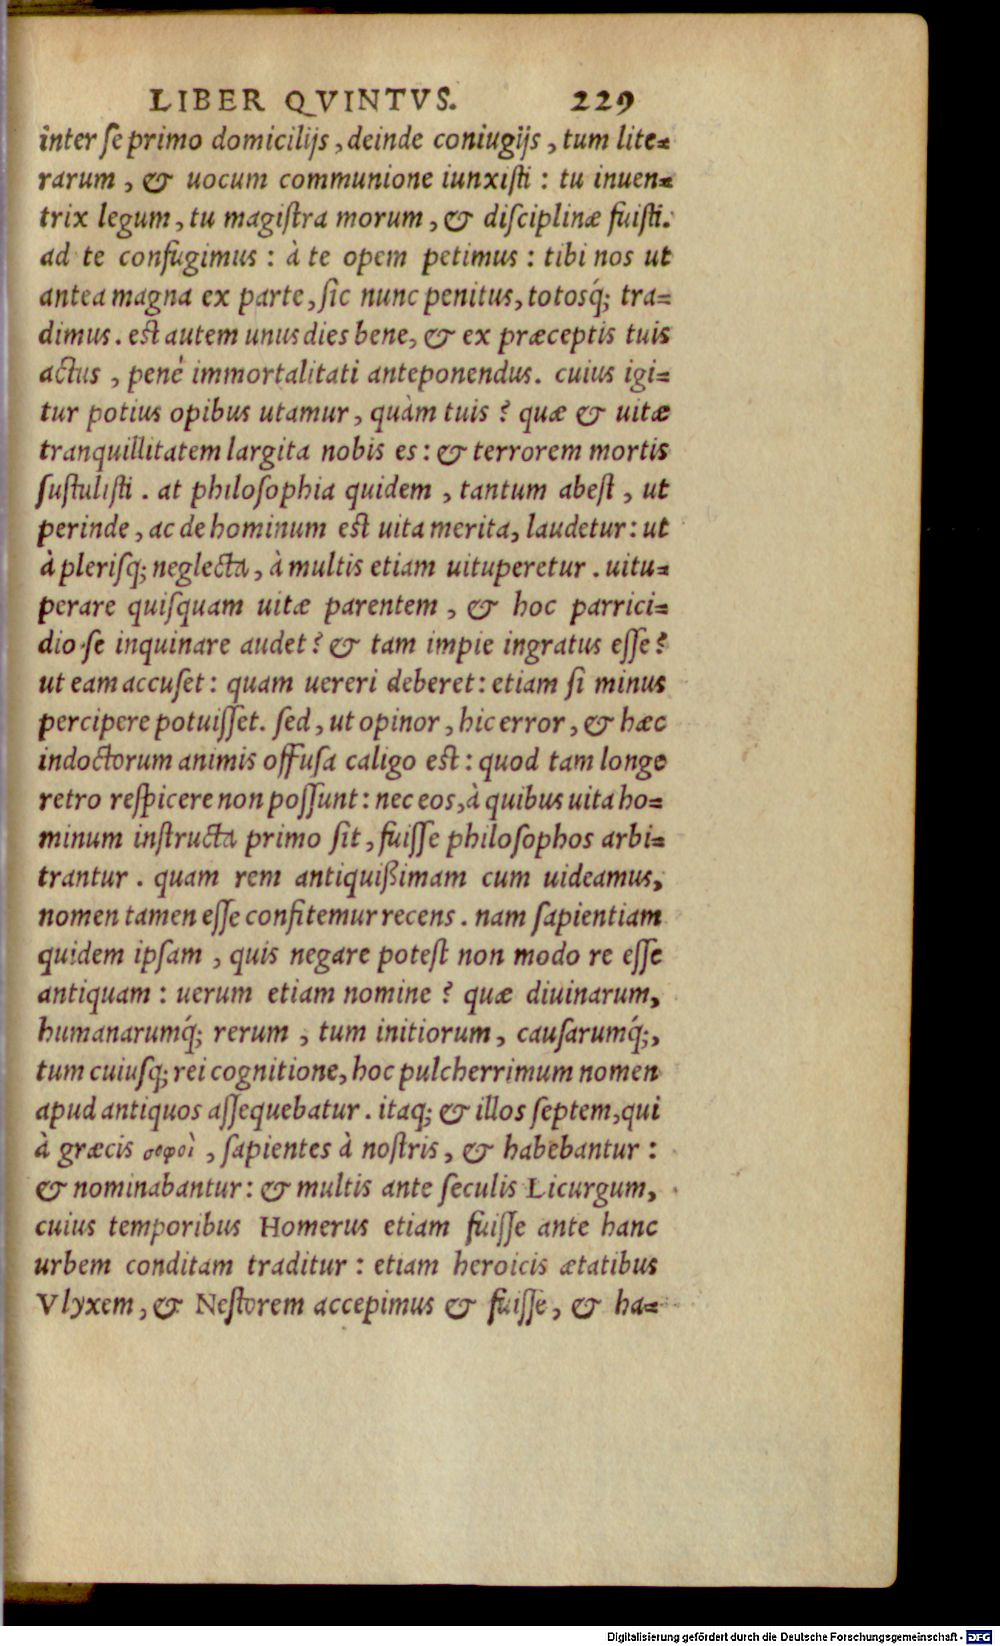 LIBER QVINTVS. 229
inter ſe primo domicilijs, deinde coniugijs, tum lite-
rarum, & uocum communione iunxiſti: tu inuen-
trix legum, tu magiſtra morum, & diſciplinæ fuiſti.
ad te confugimus: à te opem petimus: tibi nos ut
antea magna ex parte, ſic nunc penitus, totosq́; tra-
dimus. eſt autem unus dies bene, & ex præceptis tuis
actus, penè immortalitati anteponendus. cuius igi-
tur potius opibus utamur, quàm tuis? quæ & uitæ
tranquillitatem largita nobis es: & terrorem mortis
ſuſtuliſti. at philoſophia quidem, tantum abeſt, ut
perinde, ac de hominum eſt uita merita, laudetur: ut
à pleriſq; neglecta, à multis etiam uituperetur. uitu-
perare quiſquam uitæ parentem, & hoc parrici-
dio ſe inquinare audet? & tam impie ingratus eſſe?
ut eam accuſet: quam uereri deberet: etiam ſi minus
percipere potuiſſet. ſed, ut opinor, hic error, & hæc
indoctorum animis offuſa caligo eſt: quod tam longe
retro reſpicere non poſſunt: nec eos, à quibus uita ho-
minum inſtructa primo ſit, fuiſſe philoſophos arbi-
trantur. quam rem antiquißimam cum uideamus,
nomen tamen eſſe confitemur recens. nam ſapientiam
quidem ipſam, quis negare poteſt non modo re eſſe
antiquam: uerum etiam nomine? quæ diuinarum,
humanarumq́; rerum, tum initiorum, cauſarumq́;,
tum cuiuſq; rei cognitione, hoc pulcherrimum nomen
apud antiquos aſſequebatur. itaq; & illos ſeptem, qui
à græcis σοφοὶ, ſapientes à noſtris, & habebantur:
& nominabantur: & multis ante ſeculis Licurgum,
cuius temporibus Homerus etiam fuiſſe ante hanc
urbem conditam traditur: etiam heroicis ætatibus
Vlyxem, & Neſtorem accepimus & fuiſſe, & ha-
Digitalisierung gefördert durch die Deutsche Forschungsgemeinschaft - DFG